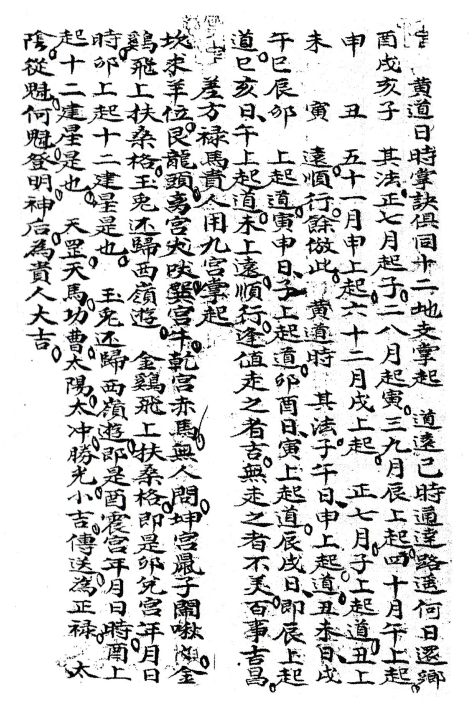 黄道日時掌訣俱同十二地支掌起 道遠已時通達路遙何日還鄉
酉戌亥子 其法正七月起子二八月起寅三九月辰上起四十月午上起
申 丑 五十一月申上起六十二月戌上起 正七月子上起道丑上
未 寅 遠順行餘倣此 黄道時 其法子午日申上起道丑未日戌
午巳辰卯 上起道寅申日子上起道卯酉日寅上起道辰戌日即辰上起
道巳亥日午上起道未上遠順行逢值走之者吉無走之者不美百事吉昌
差方禄馬貴人用九宮掌起
坎求羊位艮龍頭离宮犬吠巽宮牛乾宮赤馬無人問坤宮鼠子鬧啾啾金
鷄飛上扶桑格玉兎还歸西嶺遊 金鷄飛上扶桑格即是卯兌宮年月日
時卯上起十二建星是也 玉兎还歸西嶺遊即是酉震宮年月日時酉上
起十二建星是也 天罡天馬功曹太陽太冲勝光小吉傳送為正禄 太
陰從魁何魁登明神后為貴人大吉